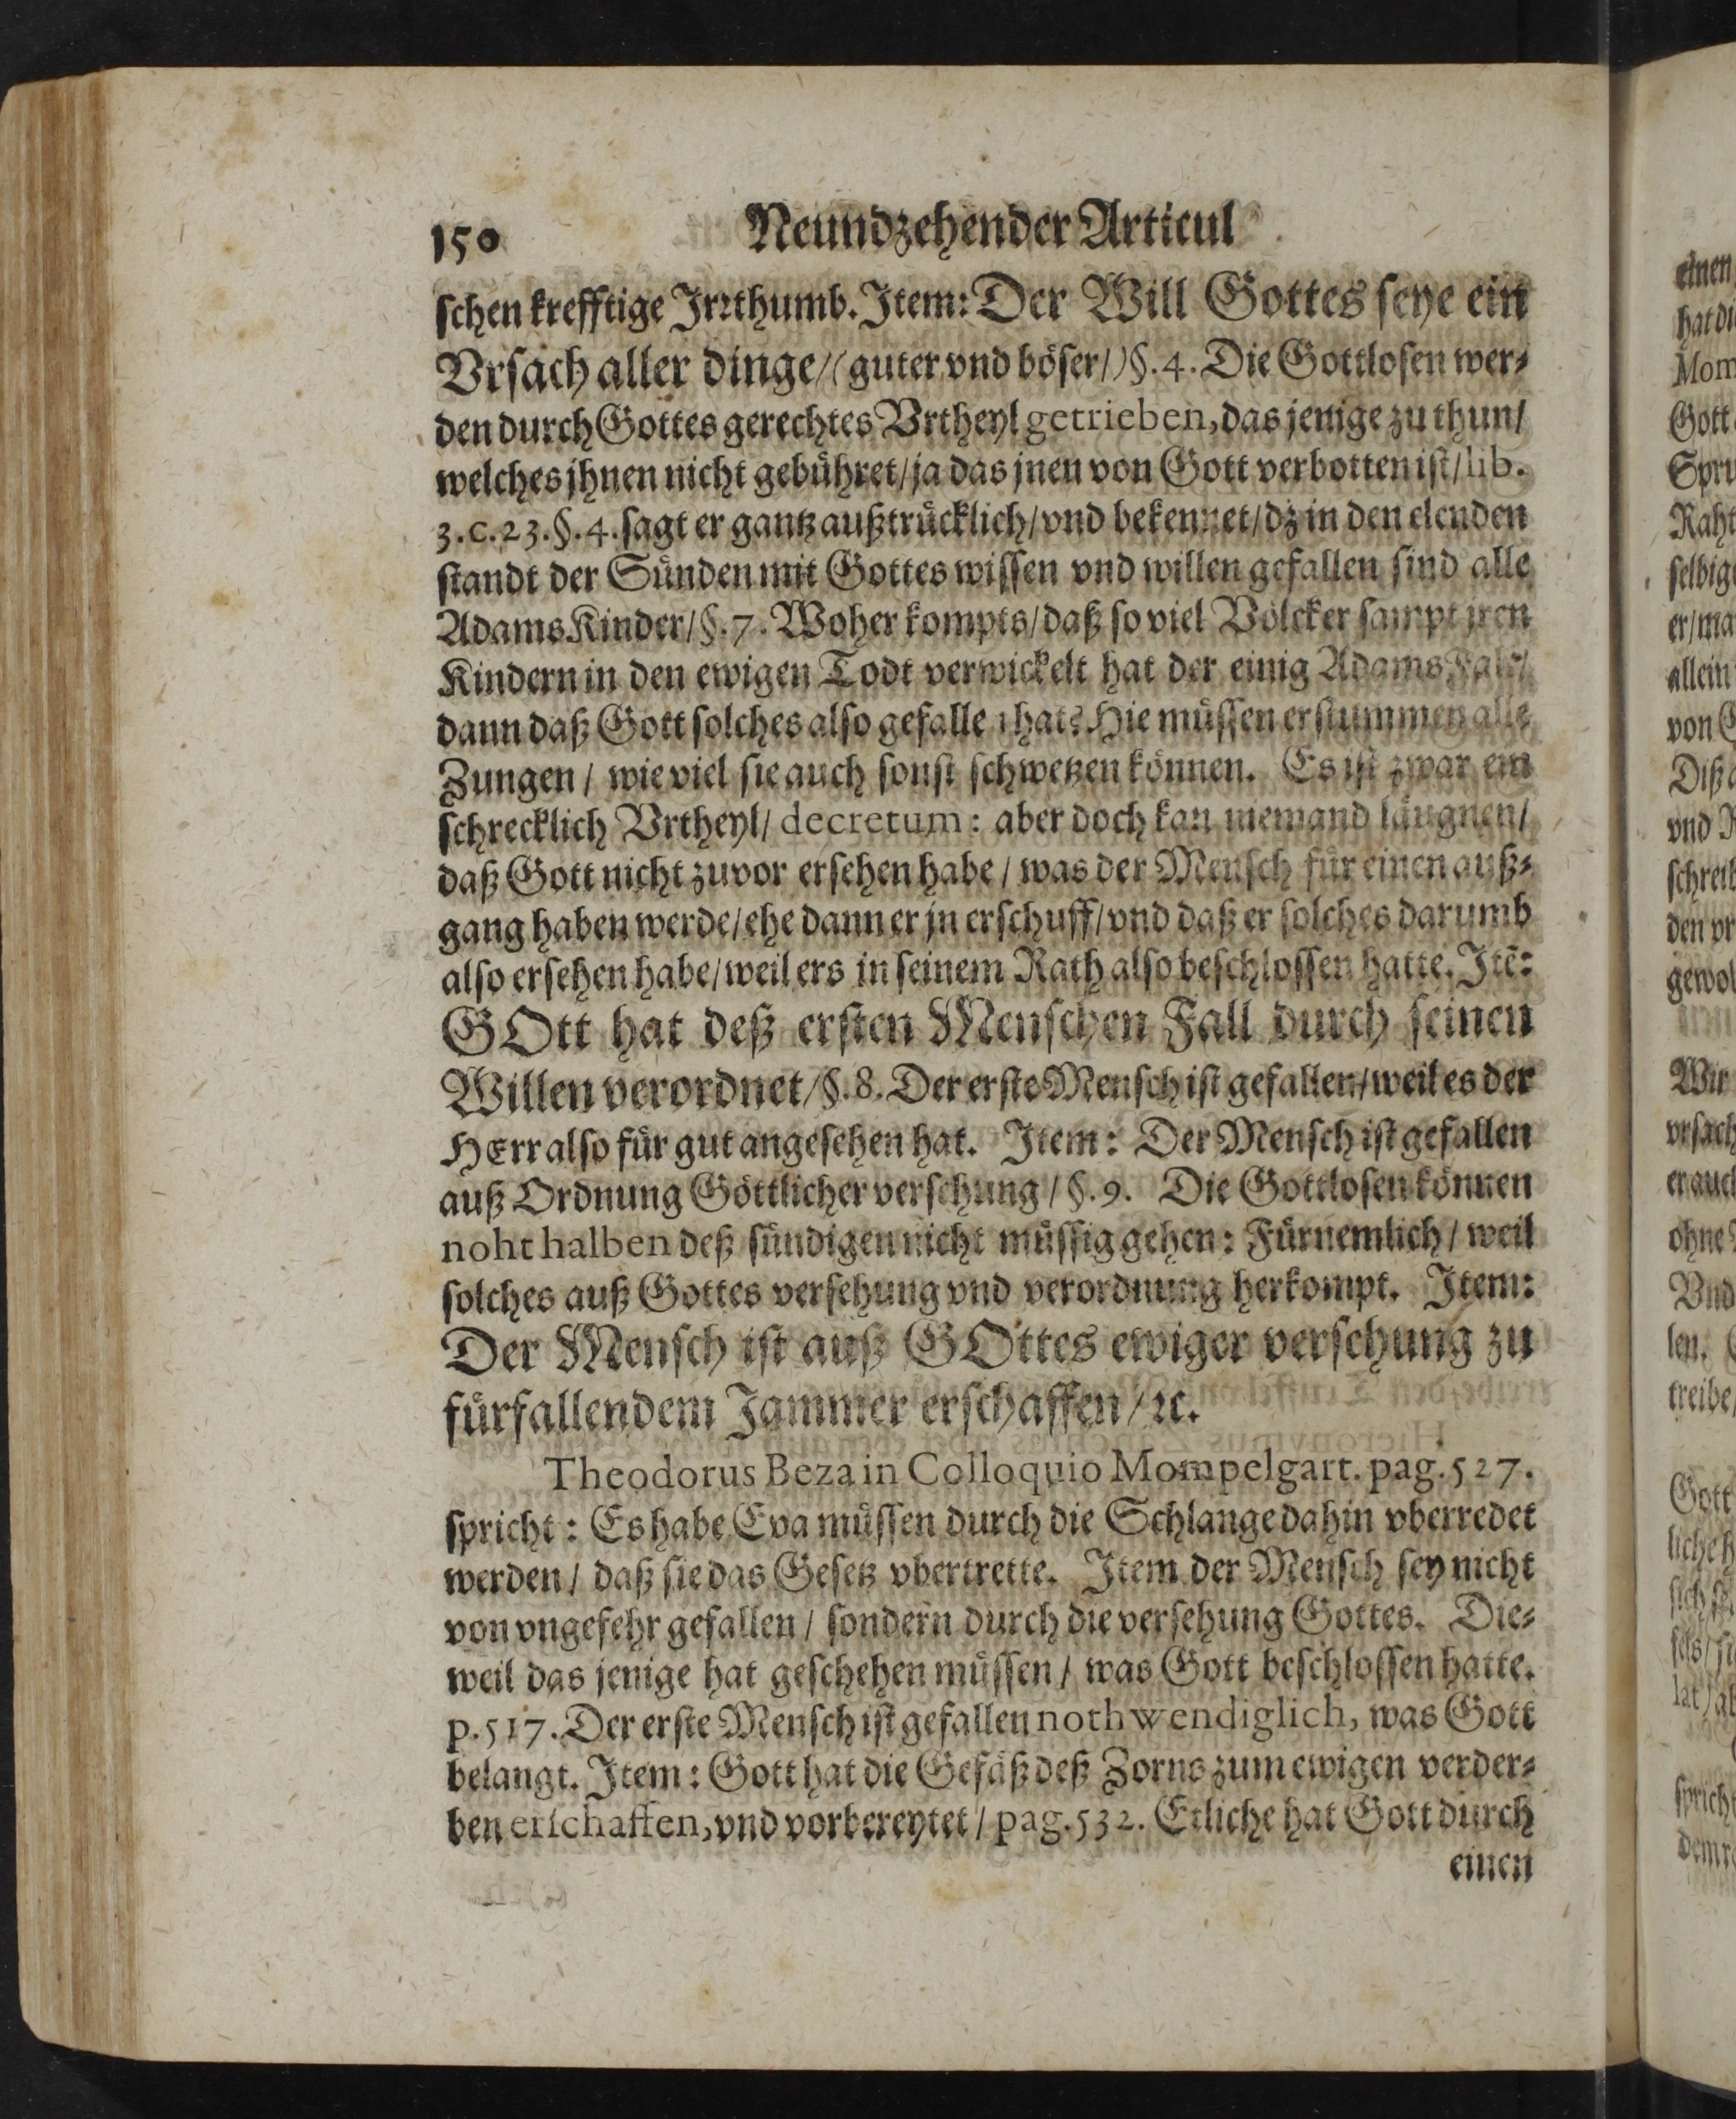 150 Neundzehender Articul
schen krefftige Irꝛthumb. Item: Der Will Gottes seye ein
Vrsach aller dinge/(guter vnd böser/)§.4. Die Gottlosen wer⸗
den durch Gottes gerechtes Vrtheyl getrieben, das jenige zu thun/
welches jhnen nicht gebühret/ja das jnen von Gott verbotten ist/lib.
3.c.23.§.4. sagt er gantz außtrücklich/vnd bekennet/dz in den elenden
standt der Sünden mit Gottes wissen vnd willen gefallen sind alle
Adams Kinder/§.7. Woher kompts/daß so viel Völcker sampt jren
Kindern in den ewigen Todt verwickelt hat der einig Adams Fall/
dann daß Gott solches also gefallen hat? Hie müssen erstummen alle
Zungen/ wie viel sie auch sonst schwetzen können. Es ist zwar ein
schrecklich Vrtheyl/ decretum: aber doch kan niemand läugnen/
daß Gott nicht zuvor ersehen habe/ was der Mensch für einen auß⸗
gang haben werde/ehe dann er jn erschuff/vnd daß er solches darumb
also ersehen habe/weil ers in seinem Rath also beschlossen hatte. Itẽ:
GOtt hat deß ersten Menschen Fall durch seinen
Willen verordnet/§.8. Der erste Mensch ist gefallen/weil es der
HErr also für gut angesehen hat. Item: Der Mensch ist gefallen
auß Ordnung Göttlicher versehung/§.9. Die Gottlosen können
noht halben deß sündigen nicht müssig gehen: Fürnemlich/ weil
solches auß Gottes versehung vnd verordnung herkompt. Item:
Der Mensch ist auß GOttes ewiger versehung zu
fürfallendem Jammer erschaffen/ꝛc.
Theodorus Beza in Colloquio Mompelgart. pag.527.
spricht: Es habe Eva müssen durch die Schlange dahin vberredet
werden/ daß sie das Gesetz vbertrette. Item der Mensch sey nicht
von vngefehr gefallen/ sondern durch die versehung Gottes. Die⸗
weil das jenige hat geschehen müssen/ was Gott beschlossen hatte.
p.517. Der erste Mensch ist gefallen nothwendiglich, was Gott
belangt. Item: Gott hat die Gefäß deß Zorns zum ewigen verder⸗
ben erschaffen, vnd vorbereytet/ pag.532. Etliche hat Gott durch
einen
einen
hat di
Mom
Gott
Spru
Raht
selbig
er/ma
allein
von G
Diß
vnd
schreib
den vr
gewol
Wir
vrsach
er auch
ohne
Vnd
len.
treibe/
Gott
liche h
spricht